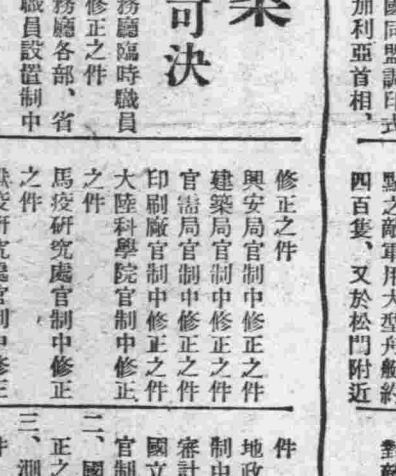 國同盟調印式
加利亞首相、
案
可決
務廳臨時職員
修正之件
務廳各部、省
職員設置制中
點之敵軍用大型舟艇約
四百隻、又於松門附近
修正之件
興安局官制中修正之件
建築局官制中修正之件
官需局官制中修正之件
印刷廠官制中修正之件
大陸科學院官制中修正
之件
馬疫研究處官制中修正
之件
獸疫研究處官制中修正
件
地政
制中
審計
國立
官制
二、國
正之
三、測